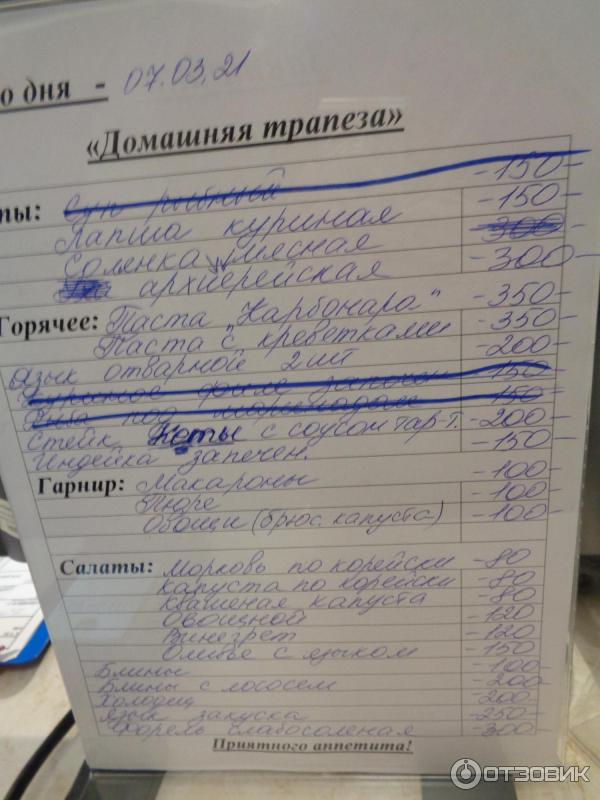 о дня - 07.03.21
«Домашняя трапеза»
ты: Суп рыбный -150-
Лапша куриная -150-
Солянка мясная 300
архиерейская -300-
Горячее: Паста "Карбонара" -350-
Паста с креветками -350-
Язык отварной 2шт -200-
Куриное филе запечен 150
Рыба под маринадом 150
Стейк Кеты с соусом тар-т. -200-
Индейка запечен. -150-
Гарнир: Макароны -100-
Пюре -100-
Овощи (брюс. капуста) -100-
Салаты: Морковь по корейски -80
капуста по корейски -80
квашеная капуста -80
Овощной -120
Винегрет -120
Оливье с языком -150
Блины -100-
Блины с лососем -200
Холодец -200
Язык закуска -250-
Форель слабосоленая -300
Приятного аппетита!
ОТЗОВИК